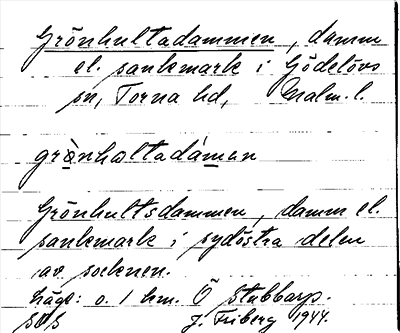 Grönhultadammen, damm
el. sankmark i Gödelövs
sn, Torna hd, Malm. l.
grö̀nhaltadámen
Grönhultsdammen, damm el.
sankmark i sydöstra delen
av socknen.
Läge: o. 1 km. Ö Stubbarp.
SOS J. Friberg 1944.